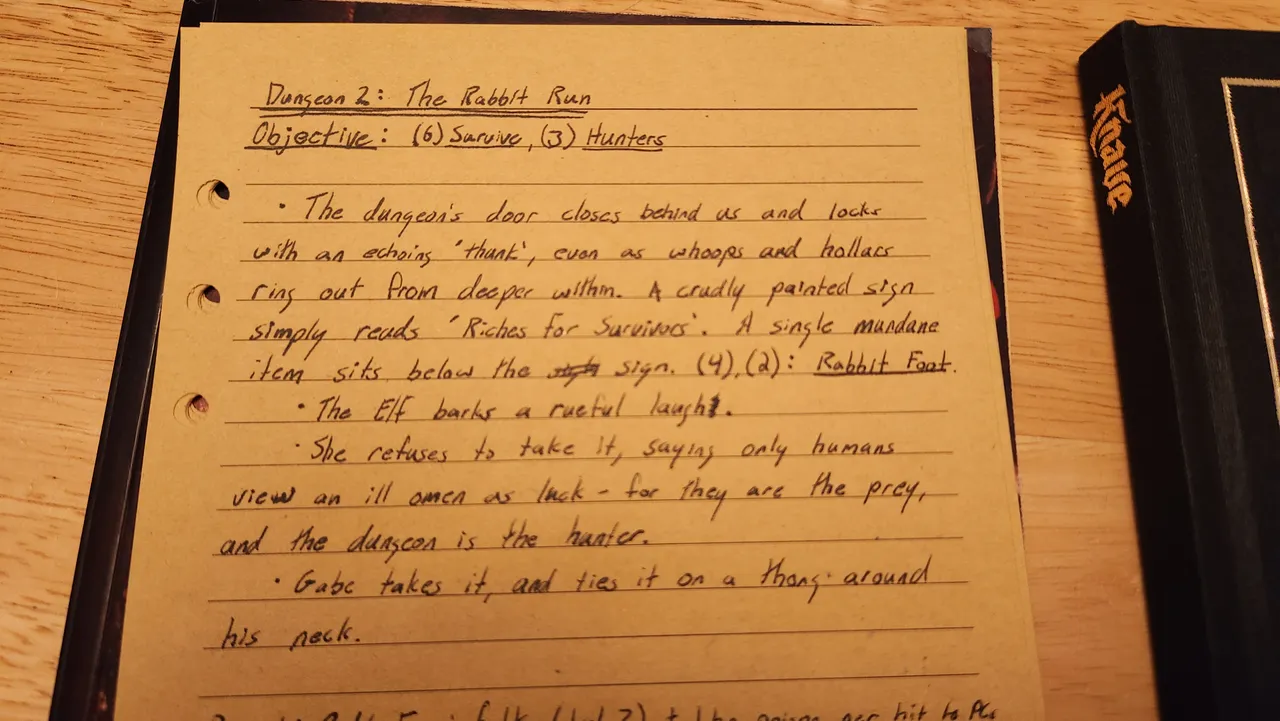 Dungeon 2: The Rabbit Run
Objective: (6) Survive, (3) Hunters
• The dungeon's door closes behind us and locks
with an echoing 'thunk', even as whoops and hollars
ring out from deeper within. A crudly painted sign
simply reads 'Riches For Survivors'. A single mundane
item sits below the sign. (4), (2): Rabbit Foot.
• The Elf barks a rueful laugh.
• She refuses to take it, saying only humans
view an ill omen as luck - for they are the prey,
and the dungeon is the hunter.
• Gabe takes it, and ties it on a thong around
his neck.
per hit to PCs
Knave